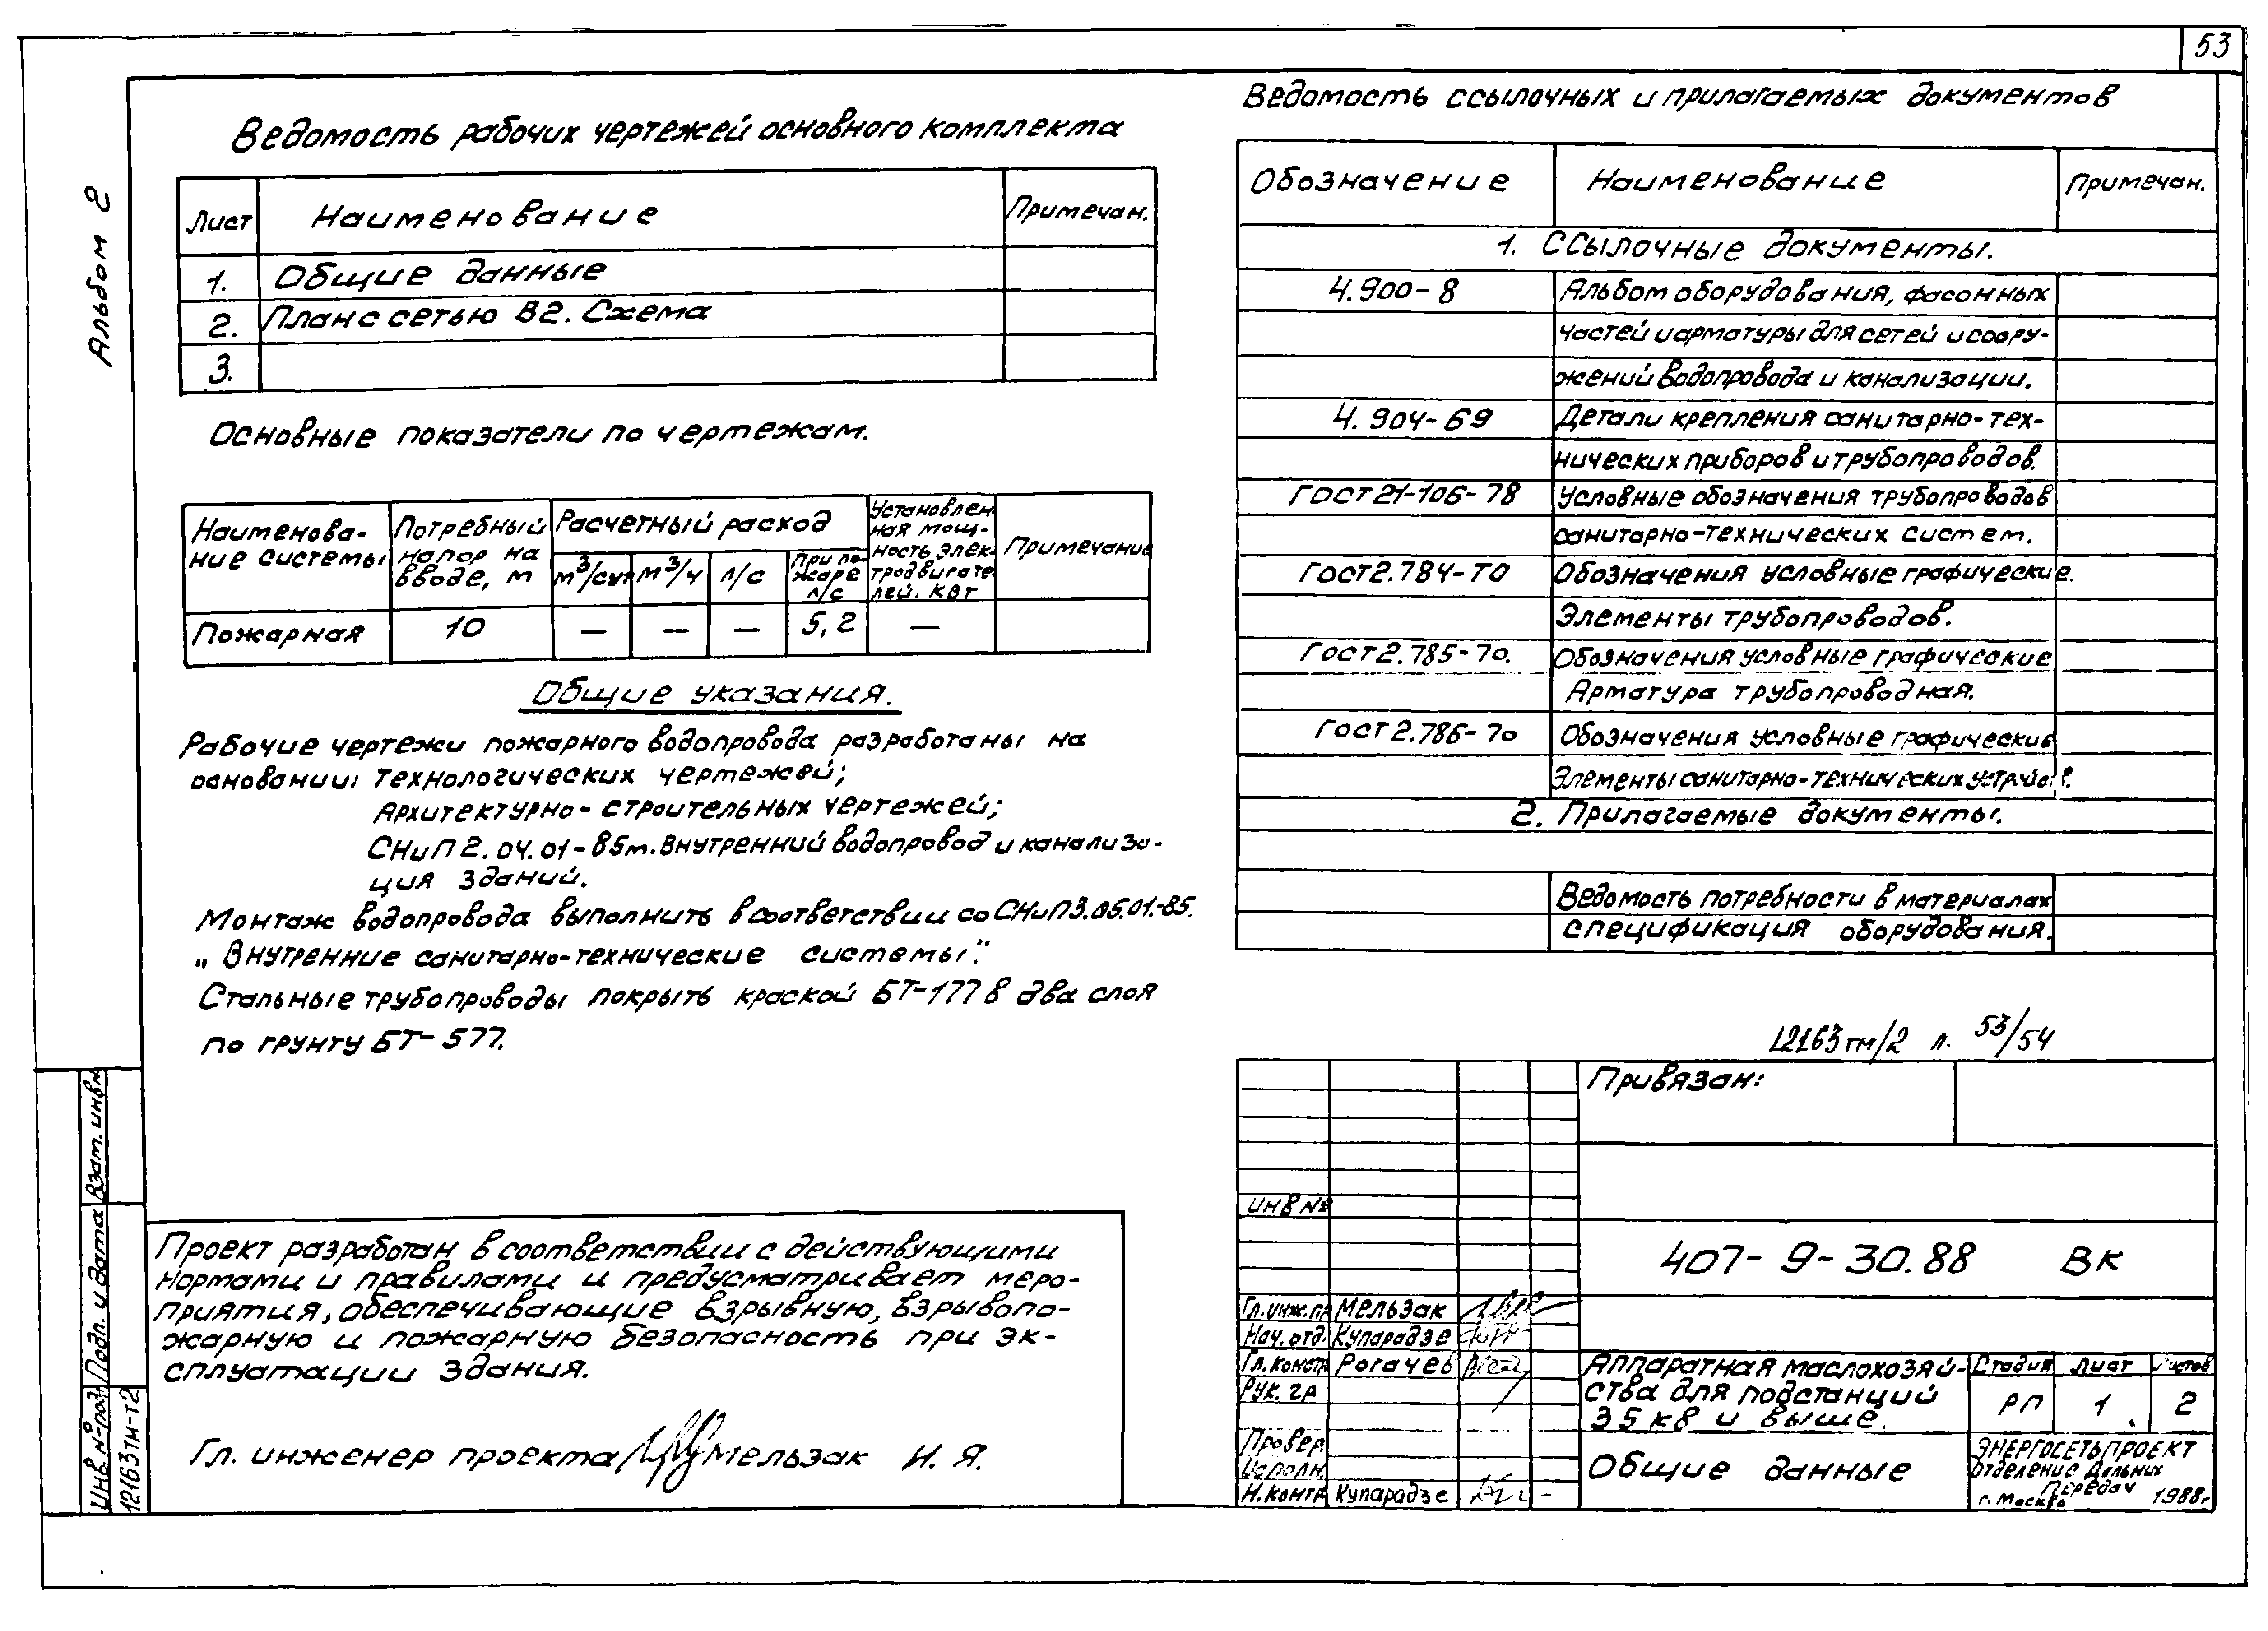 53
Альбом 2
Ведомость рабочих чертежей основного комплекта
Лист Наименование Примечан.
1. Общие данные
2. План с сетью В2. Схема
3.
Основные показатели по чертежам.
Наименова-
ние системы
Потребный
напор на
вводе, м
Расчетный расход
м³/сут м³/ч л/с
При по-
жаре
л/с
Установлен-
ная мощ-
ность элек-
тродвигате
лей. квт
Примечание
Пожарная 10 — — — 5,2 —
Общие указания.
Рабочие чертежи пожарного водопровода разработаны на
основании: технологических чертежей;
Архитектурно-строительных чертежей;
СНиП 2.04.01-85 т. Внутренний водопровод и канализа-
ция зданий.
Монтаж водопровода выполнить в соответствии со СНиП 3.05.01.-85.
„Внутренние санитарно-технические системы".
Стальные трубопроводы покрыть краской БТ-177 в два слоя
по грунту БТ-577.
Проект разработан в соответствии с действующими
нормами и правилами и предусматривает меро-
приятия, обеспечивающие взрывную, взрывопо-
жарную и пожарную безопасность при эк-
сплуатации здания.
Гл. инженер проекта Мельзак И. Я.
Взам. инв№
Подп. и дата
Инв. №подл
12163тм-т2
Ведомость ссылочных и прилагаемых документов
Обозначение Наименование Примечан.
1. Ссылочные документы.
4.900-8 Альбом оборудования, фасонных
частей и арматуры для сетей и соору-
жений водопровода и канализации.
4.904-69 Детали крепления санитарно-тех-
нических приборов и трубопроводов.
ГОСТ 21-106-78 Условные обозначения трубопроводов
санитарно-технических систем.
ГОСТ 2.784-70 Обозначения условные графические.
Элементы трубопроводов.
ГОСТ 2.785-70. Обозначения условные графические
Арматура трубопроводная.
ГОСТ 2.786-70 Обозначения условные графические
Элементы санитарно-технических устройств.
2. Прилагаемые документы.
Ведомость потребности в материалах
спецификация оборудования.
12163тм/2 л. 53/54
Привязан:
инв №
407-9-30.88 ВК
Гл.инж.пр Мельзак
Нач.отд. Купарадзе
Гл.констр Рогачев
Рук. гр
Провер.
Исполн.
Н.контр Купарадзе
Аппаратная маслохозяй-
ства для подстанций
35 кв и выше.
Стадия Лист Листов
РП 1 2
Общие данные
ЭНЕРГОСЕТЬПРОЕКТ
Отделение Дальних
Передач
г. Москва 1988г